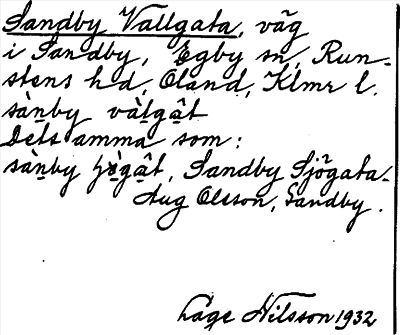 Sandby Vallgata, väg
i Sandby, Egby sn, Run-
stens hd, Öland, Klmr l.
sàn̥by vàl̥gât
Detsamma som:
sàn̥by ʃø̀gât, Sandby Sjögata.
Aug Olsson, Sandby.
Låge Nilsson 1932